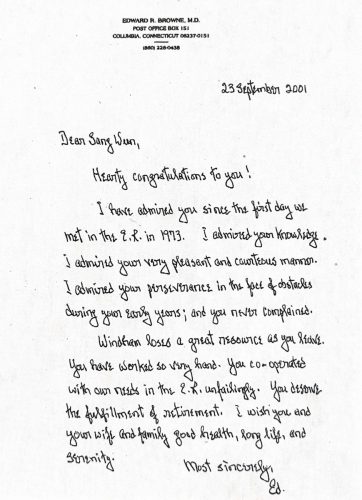 EDWARD R. BROWNE, M.D.
POST OFFICE BOX 151
COLUMBIA, CONNECTICUT 06237-0151
(860) 228-0438
23 September 2001
Dear Sang Wun,
Hearty congratulations to you!
I have admired you since the first day we
met in the E.R. in 1973. I admired your knowledge.
I admired your very pleasant and courteous manner.
I admired your perseverance in the face of obstacles
during your early years; and you never complained.
Windham loses a great resource as you leave.
You have worked so very hard. You co-operated
with our needs in the E.R. unfailingly. You deserve
the fulfillment of retirement. I wish you and
your wife and family good health, long life, and
serenity.
Most sincerely,
Ed.